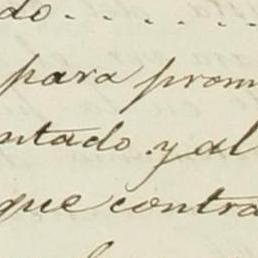 do. . . . . . .
para prom
ntado. y al
que contra